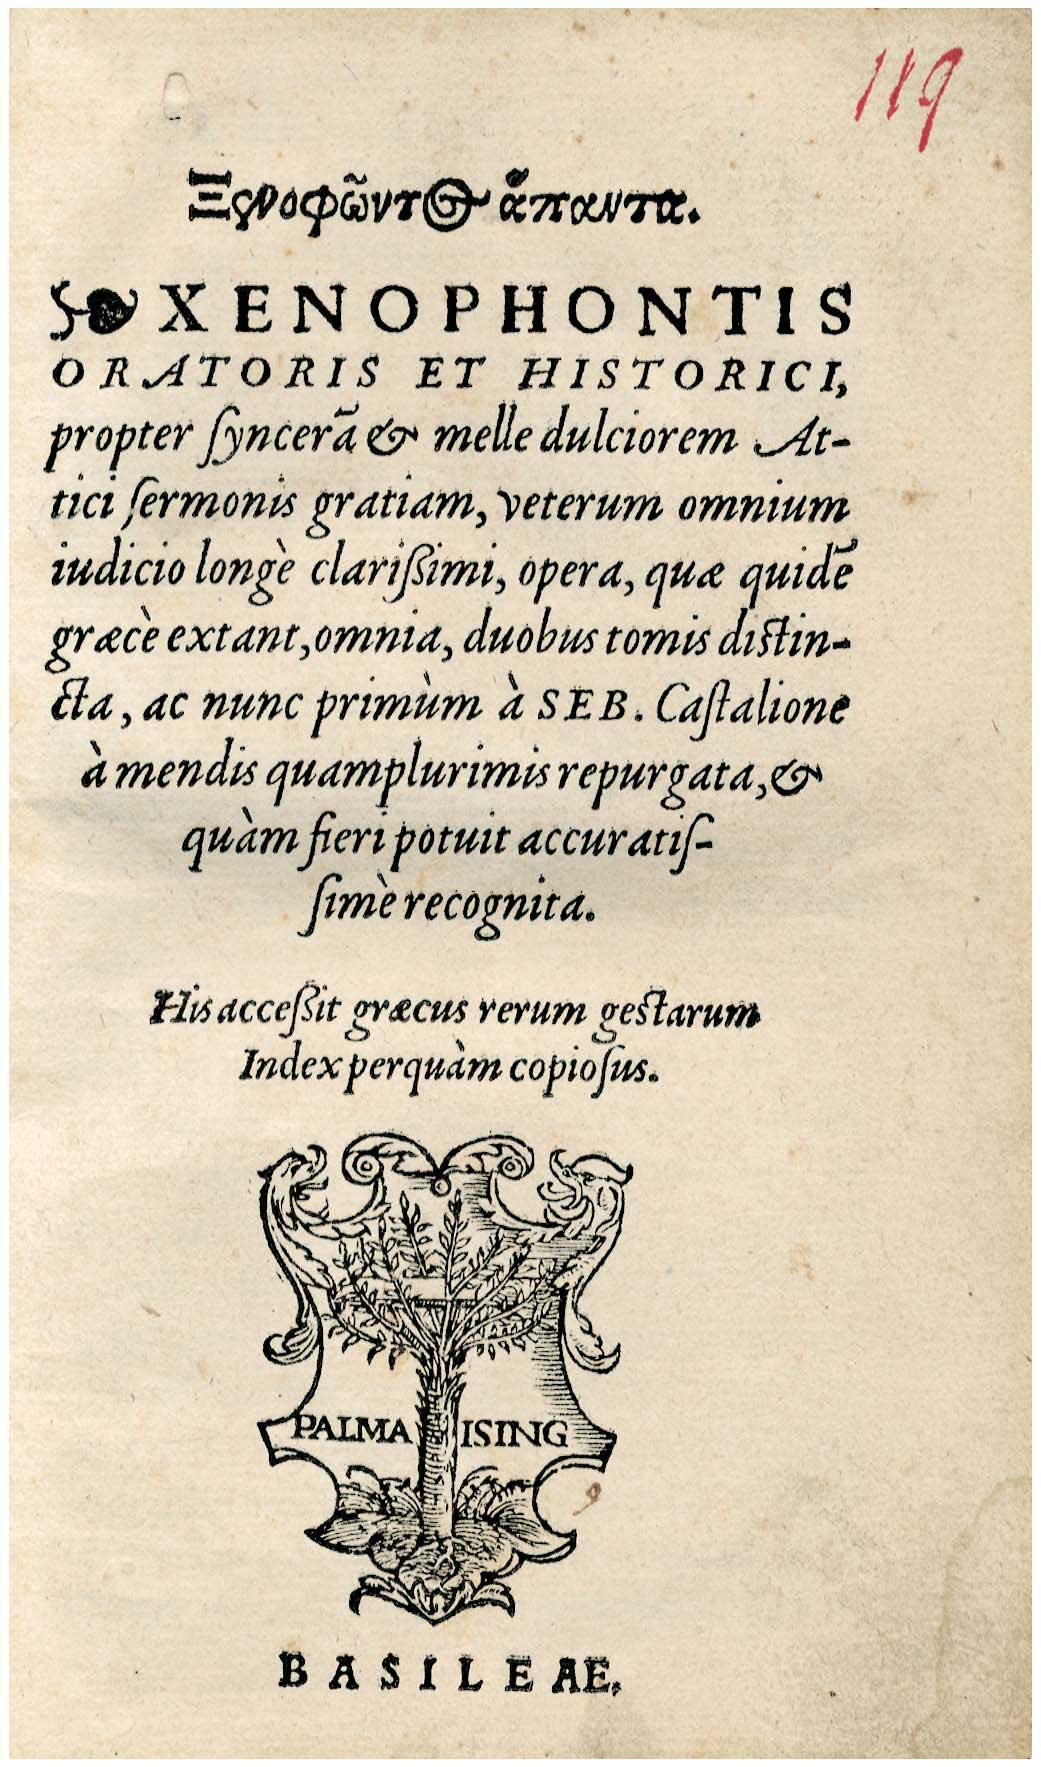 119
Ξενοφῶντος ἅπαντα.
XENOPHONTIS
ORATORIS ET HISTORICI,
propter ſyncerã & melle dulciorem At-
tici ſermonis gratiam, veterum omnium
iudicio longè clariſsimi, opera, quæ quidẽ
græcè extant, omnia, duobus tomis diſtin-
cta, ac nunc primùm à SEB. Caſtalione
à mendis quamplurimis repurgata, &
quàm fieri potuit accuratiſ-
ſimè recognita.
His acceſsit græcus rerum geſtarum
Index perquàm copioſus.
PALMA ISING
BASILEAE,